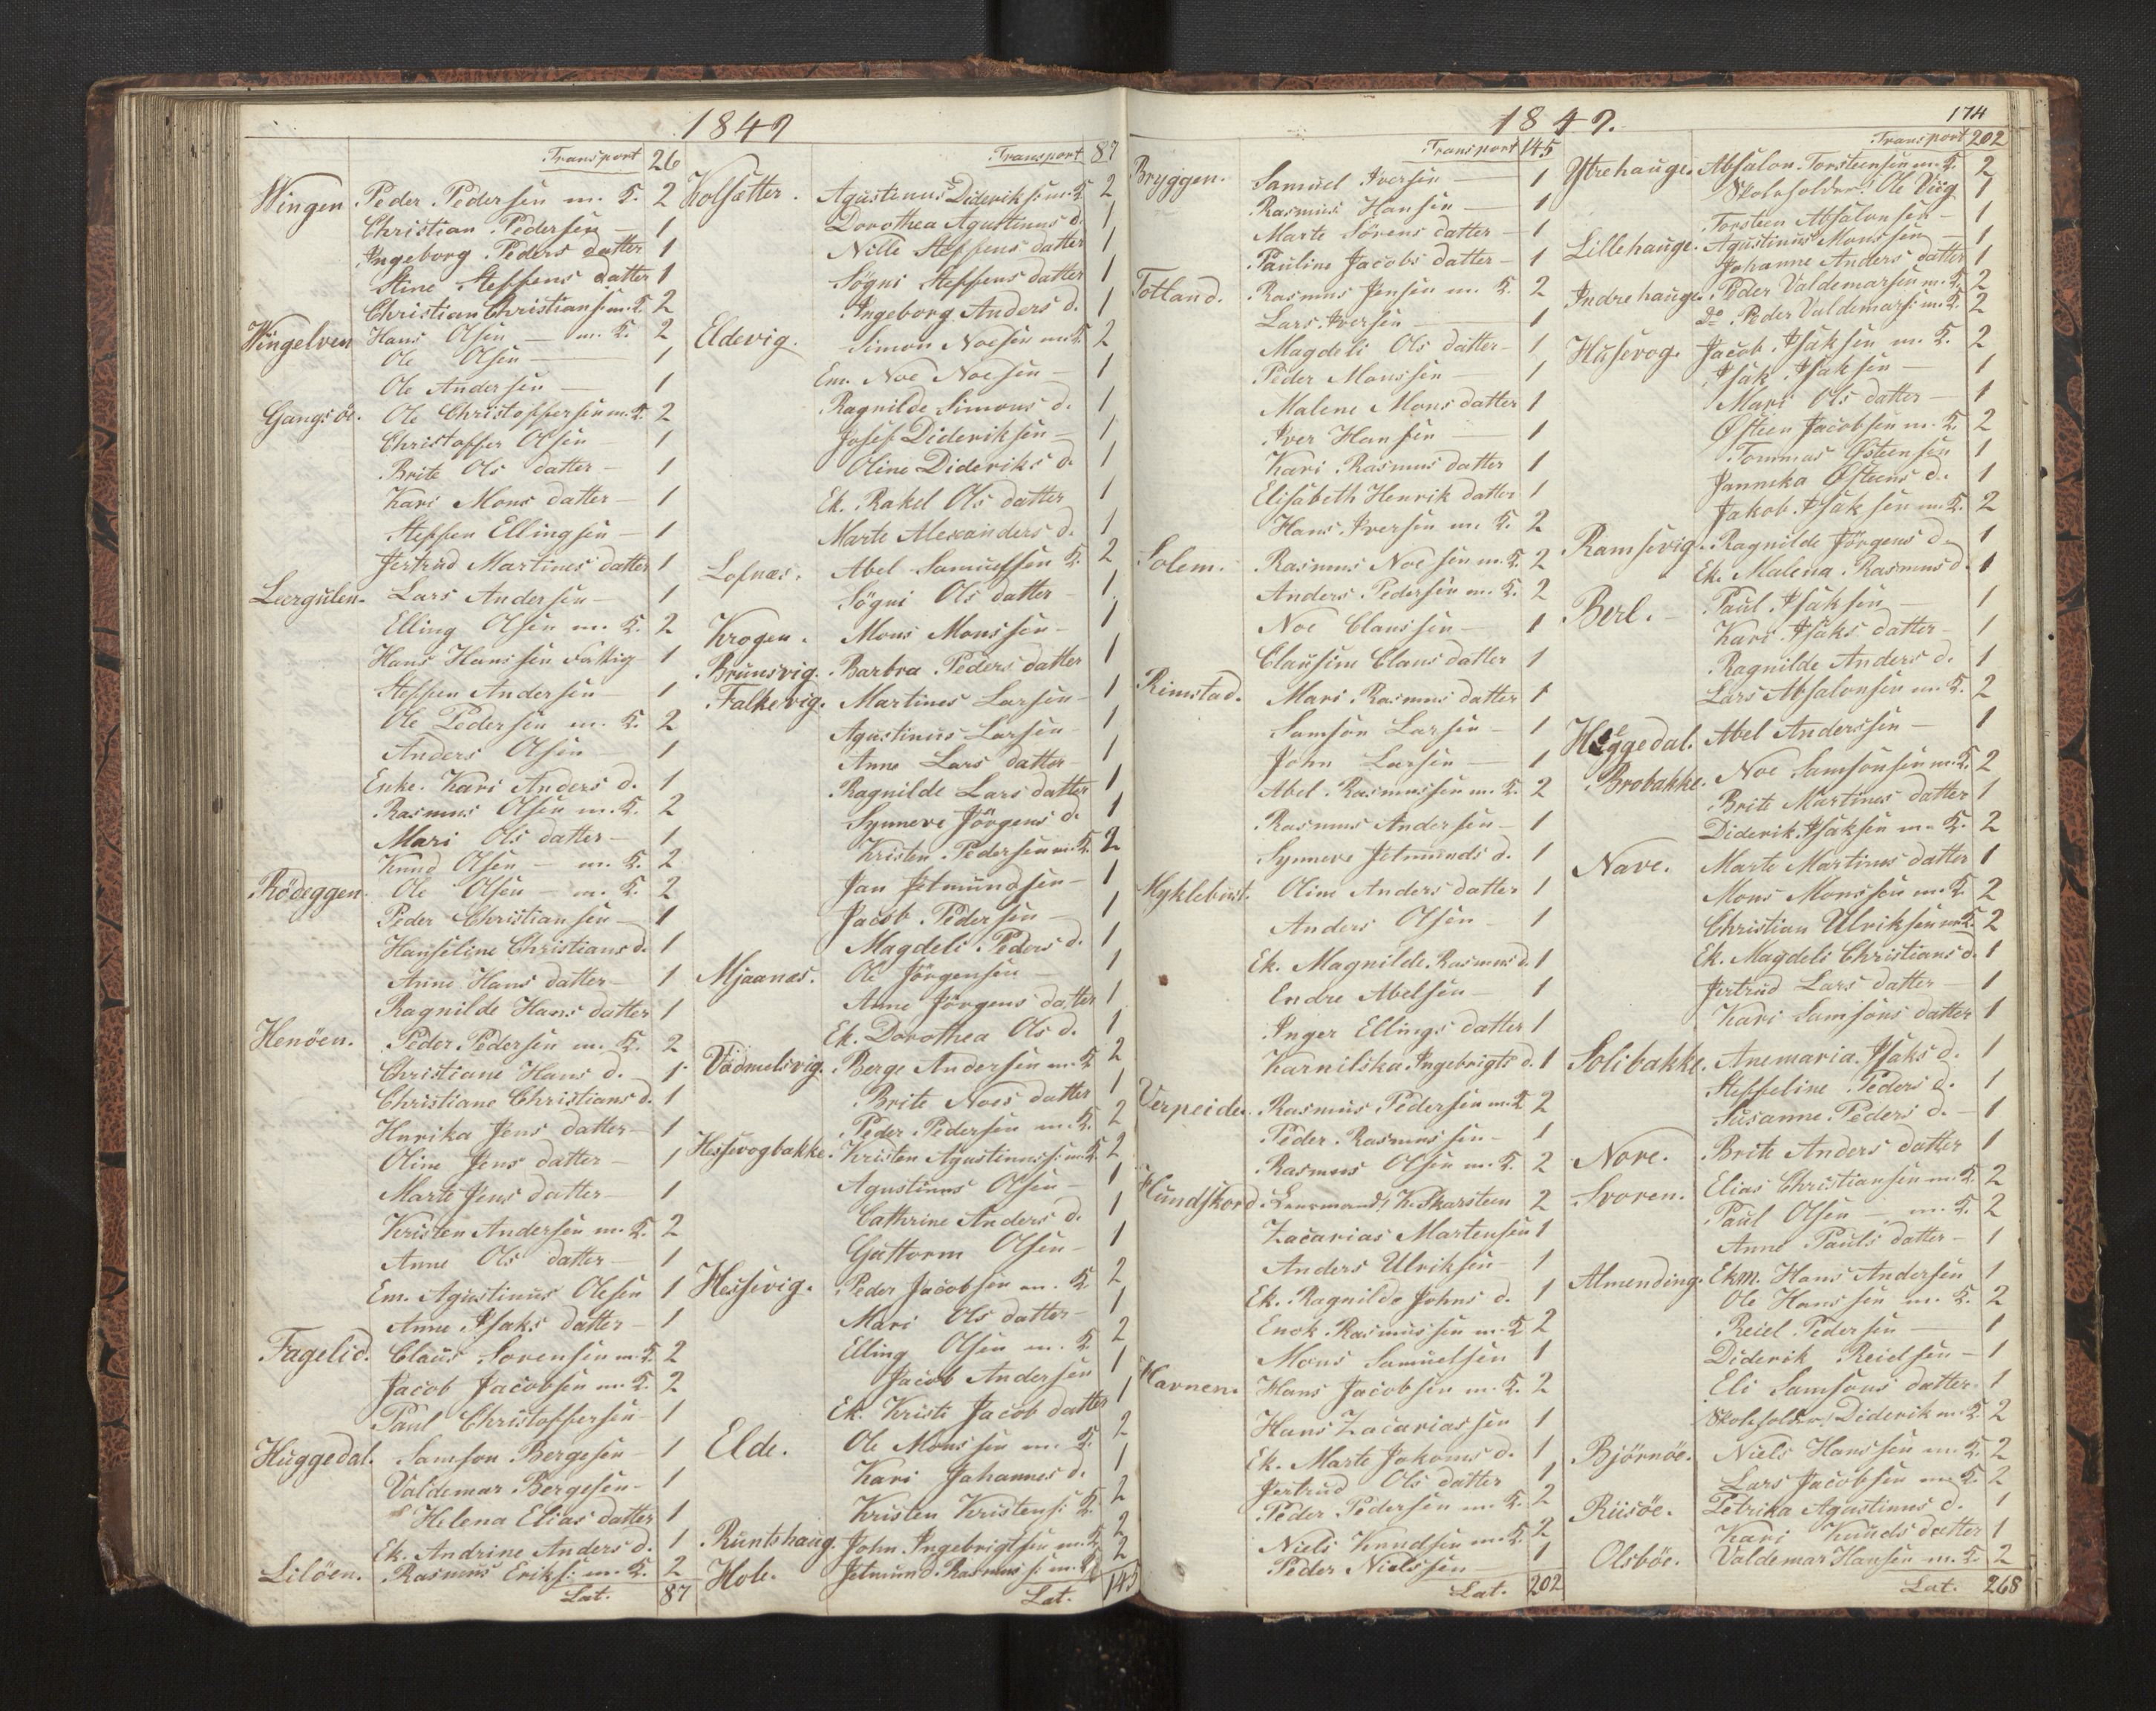 1847
Transport 26
Wingen Peder Pedersen m. K. 2
Christian Pedersen — 1
Ingeborg Peders datter 1
Stine Steffens datter 1
Christian Christians: m. K. 2
Wingelven Hans Olsen — m. K. 2
Ole Olsen — 1
Ole Andersen — 1
Gangsöe. Ole Christoffersen m. K. 2
Christoffer Olsen — 1
Brite Ols datter — 1
Kari Mons datter — 1
Steffen Ellingsen — 1
Jertrud Martines datter 1
Leergulen. Lars Andersen — 1
Elling Olsen m. K. 2
Hans Hanssen Fattig 1
Steffen Andersen — 1
Ole Pedersen m. K. 2
Anders Olsen — 1
Enke. Kari Anders d. 1
Rasmus Olsen m. K. 2
Mari Ols datter — 1
Knud Olsen — m. K. 2
Rödeggen Ole Olsen — m. K. 2
Peder Christiansen — 1
Hanseline Christians d. 1
Anne Hans datter — 1
Ragnilde Hans datter 1
Henöen. Peder Pedersen m. K. 2
Christiane Hans d. — 1
Christiane Christians d. 1
Hnrika Jens datter — 1
Oline Jens datter — 1
Marte Jens datter — 1
Kristen Andersen m. K. 2
Anne Ols datter — 1
Em. Agustinus Olesen 1
Anne Isaks datter — 1
Fagelid. Claus Sorensen m. K. 2
Jacob Jacobsen m. K. 2
Paul Christoffersen — 1
Huggedal. Samson Bergesen 1
Valdemar Bergesen — 1
Helena Elias datter 1
Ek. Andrine Anders d. 1
Lilöen. Rasmus Eriks: m. K. 2
Lat. 87
Transport 87
Kolsetter. Agustinus Dideriks: m. K. 2
Dorothea Agustinus d. 1
Nille Steffens datter 1
Sögni Steffens datter 1
Ingeborg Anders d. 1
Eldevig. Simon Noesen m. K. 2
Em. Noe Noesen — 1
Ragnilde Simons d. 1
Josef Dideriksen — 1
Oline Dideriks d. 1
Ek. Rakel Ols datter 1
Marte Alexanders d. 1
Lofnæs. Abel Samuelsen K. 2
Sögni Ols datter — 1
Krogen. Mons Monssen — 1
Brunsvig. Barbra Peders datter 1
Falkevig. Martines Larsen — 1
Agustinus Larsen — 1
Anne Lars datter — 1
Ragnilde Lars datter 1
Synneve Jörgens d. 1
Kristen Pedersen m. K. 2
Jan Jetmundsen — 1
Jacob Pedersen — 1
Magdeli Peders d. 1
Mjaanæs. Ole Jörgensen — 1
Anne Jörgens datter 1
Ek. Dorothea Ols d. 1
Vadmelsvig. Berge Andersen m. K. 2
Brite Noes datter 1
Peder Pedersen m. K. 2
Hessevogbakke. Kristen Agustinuss: m. K. 2
Agustinus Olsen — 1
Cathrine Anders d. 1
Guttorm Olsen — 1
Hessevig. Peder Jacobsen m. K. 2
Mari Ols datter — 1
Elling Olsen m. K. 2
Jacob Andersen 1
Ek. Kristi Jacob datter 1
Elde. Ole Monssen m. K. 2
Kari Johannes d. 1
Kristen Kristens: K. 2
Runtshaug. John Ingebrigtsen m. K. 2
Hole. Jetmund Rasmuss: m. K. 2
Lat. 145
1847. 174
Transport 145
Bryggen. Samuel Iversen — 1
Rasmus Hansen — 1
Marte Sörens datter — 1
Pauline Jacobs datter — 1
Totland. Rasmus Jensen m. K. 2
Lars Iversen — 1
Magdeli Ols datter — 1
Peder Monssen — 1
Malene Mons datter 1
Iver Hansen — 1
Kari Rasmus datter 1
Elisabeth Henrik datter 1
Hans Iversen m. K. 2
Solem. Rasmus Noesen m. K. 2
Anders Pedersen m. K. 2
Noe Claussen — 1
Clausine Claus datter 1
Rimstad. Mari Rasmus datter 1
Samson Larsen — 1
John Larsen — 1
Abel Rasmussen m. K. 2
Rasmus Andersen — 1
Synneve Jetmunds d. 1
Myklebust. Oline Anders datter 1
Anders Olsen — 1
Ek. Magnilde Rasmus d. 1
Endre Abelsen — 1
Inger Ellings datter 1
Karnilska Ingebrigts d. 1
Verpeide. Rasmus Pedersen m. K. 2
Peder Rasmussen — 1
Rasmus Olsen m. K. 2
Hundskord. Lensmand K. Skarstein 2
Zacarias Martensen 1
Anders Ulriksen — 1
Ek. Ragnilde Johns d. 1
Enok Rasmussen m. K. 2
Mons Samuelsen 1
Havnen. Hans Jacobsen m. K. 2
Hans Zacariassen 1
Ek. Marte Jakoms d. 1
Jertrud Ols datter 1
Peder Pedersen m. K. 2
Niels Knudsen m. K. 2
Peder Nielssen 1
Lat. 202
Transport 202
Ytrehauge. Absalon Torsteensen m. K. 2
Skoleholder Ole Viig 1
Torsteen Absalonsen — 1
Lillehauge. Agustinus Monssen — 1
Johanne Anders datter 1
Indrehauge. Peder Valdemarsen m. K. 2
do. Peder Valdemars: m. K. 2
Husevog. Jacob Isaksen m. K. 2
Isak Isaksen — 1
Mari Ols datter — 1
Østeen Jacobsen m. K. 2
Tommas Østeensen 1
Jannika Østeens d. 1
Jakob Isaksen m. K. 2
Ramsevig. Ragnilde Jörgens d. 1
Ek. Malena Rasmus d. 1
Berl. Paul Isaksen — 1
Kari Isaks datter — 1
Ragnilde Anders d. 1
Lars Absalonsen m. K. 2
Heggedal. Abel Anderssen — 1
Brobakke. Noe Samsonsen m. K. 2
Brite Martines datter 1
Diderik Isaksen m. K. 2
Nave. Marte Martines datter 1
Mons Monssen m. K. 2
Christian Ulriksen m. K. 2
Ek. Magdeli Christians d. 1
Jertrud Lars datter — 1
Kari Samsons datter 1
Solibakke. Anemaria Isaks d. 1
Steffeline Peders d. 1
Susanne Peders d. — 1
Nore. Brite Anders datter 1
Svoren. Elias Christiansen m. K. 2
Paul Olsen — m. K. 2
Anne Pauls datter — 1
Almending. Ekm. Hans Andersen 1
Ole Hanssen m. K. 2
Reiel Pedersen — 1
Diderik Reielsen — 1
Eli Samsons datter 1
Skoleholder Diderik m. K. 2
Björnöe. Niels Hanssen m. K. 2
Lars Jacobsen m. K. 2
Riisöe. Petrika Agustinus d. 1
Kari Knuds datter 1
Olsböe. Valdemar Hansen m. K. 2
Lat. 268